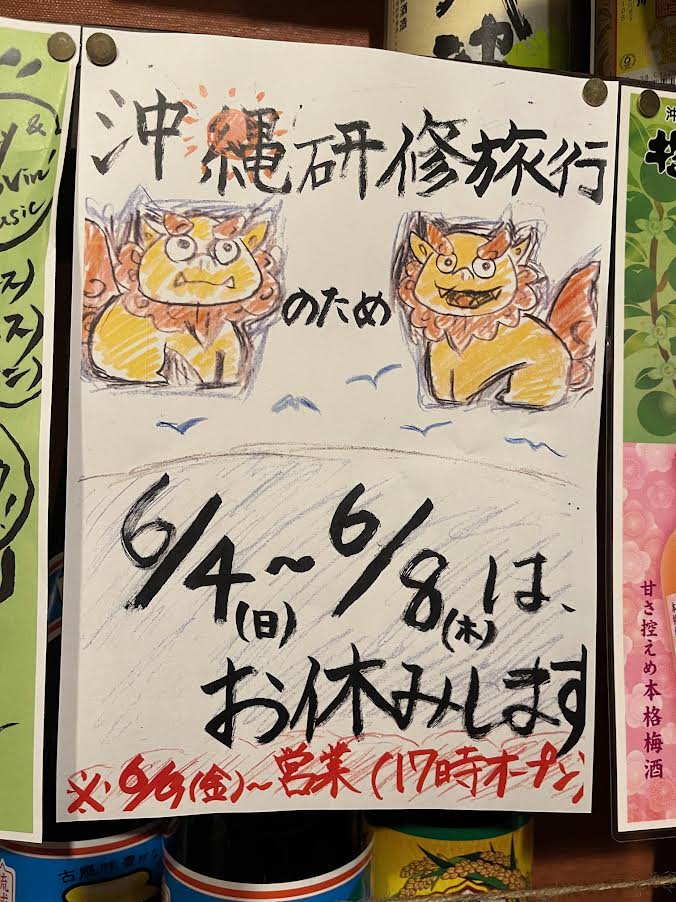 沖縄研修旅行
のため
6/4(日)〜6/8(木)は、
お休みします
※6/9(金)〜営業(17時オープン)
甘さ控えめ本格梅酒
&
usic
沖